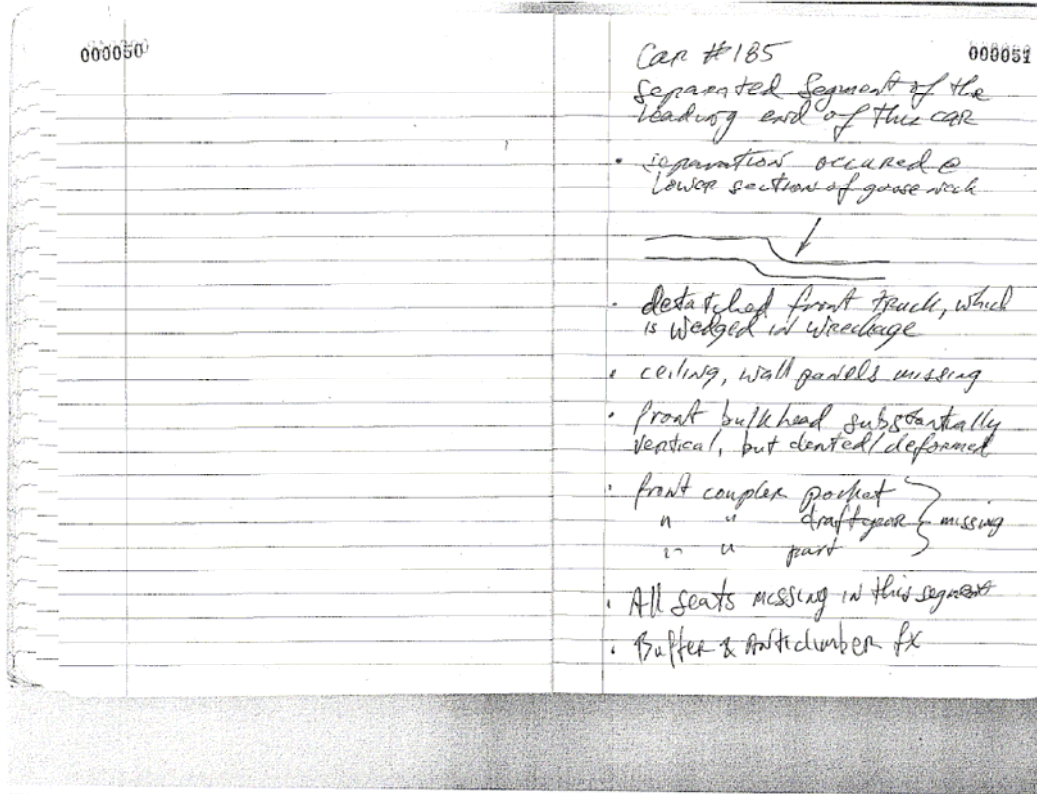 000050
000051
Car #185
separated segment of the
leading end of this car
• separation occured @
lower section of gooseneck
• detatched front truck, which
is wedged in wreckage
• ceiling, wall panels missing
• front bulkhead substantially
vertical, but dented/deformed
• front coupler pocket
" " draftgear } missing
" " part
• All seats missing in this segment
• Buffer & Anticlimber fx